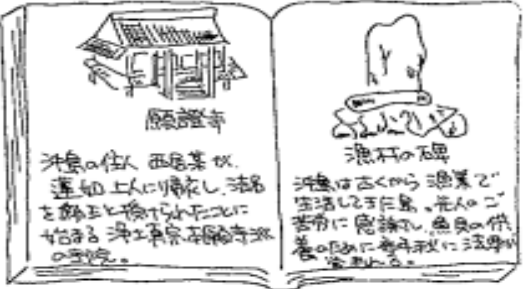 願證寺
沖島の住人 西居某が、
蓮如上人に帰依し、法名
を願主と授けられたことに
始まる 浄土真宗本願寺派
の寺院。
漁村の碑
沖島は古くから 漁業で
生活してきた島。先人のご
苦労に感謝し、魚貝の供
養のために毎年秋に法要が
営まれる。